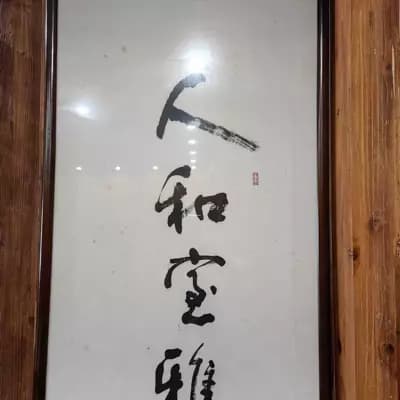 人和室雅